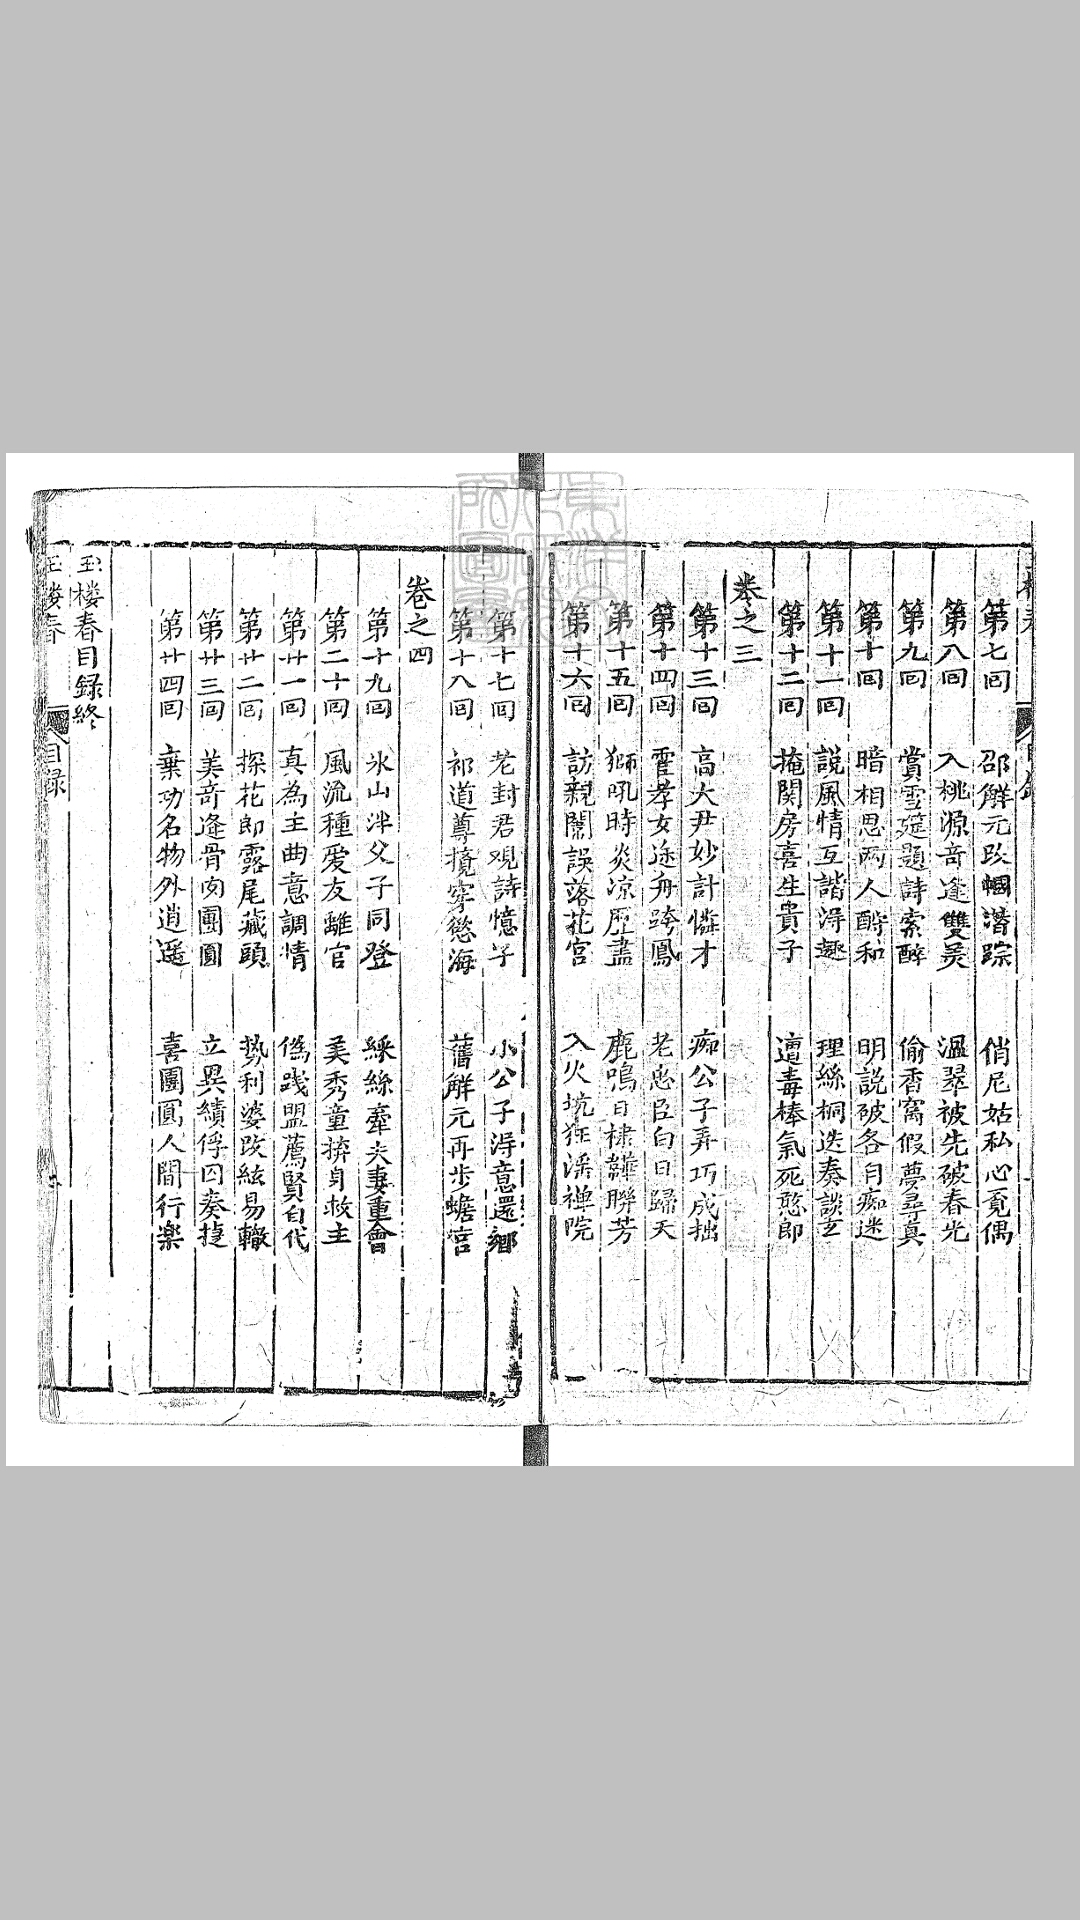 第七回 邵解元改幗潛踪 俏尼姑私心覓偶
第八回 入桃源音逢雙美 溫翠被先破春光
第九回 賞雪筵題詩索醉 偷香窩假夢尋真
第十回 暗相思兩人酧和 明説破各自痴迷
第十一回 説風情互諧淂趣 理絲桐迭奏談玄
第十二回 掩関房喜生貴子 遭毒棒氣死憨郎
卷之三
第十三回 高大尹妙計憐才 痴公子弄巧成拙
第十四回 霍孝女逊舟跨鳳 老忠臣白日歸天
第十五回 獅吼時炎凉歷盡 鹿鳴日棣韡聯芳
第十六回 訪親闈誤落花宮 入火坑狂淫禅院
第十七回 老封君观詩憶子 小公子淂意還鄉
第十八回 祁道尊攪穿慾海 舊解元再步蟾宮
卷之四
第十九回 氷山泮父子同登 綵絲牽夫妻重會
第二十回 風流種爱友離官 美秀童捹身救主
第廿一回 真為主曲意調情 偽践盟薦賢自代
第廿二回 探花郎露尾藏頭 勢利婆改絃易轍
第廿三回 美奇逢骨肉團圓 立異績俘囚奏捷
第廿四回 棄功名物外逍遥 喜團圓人間行樂
玉樓春目録終
玉楼春 目録